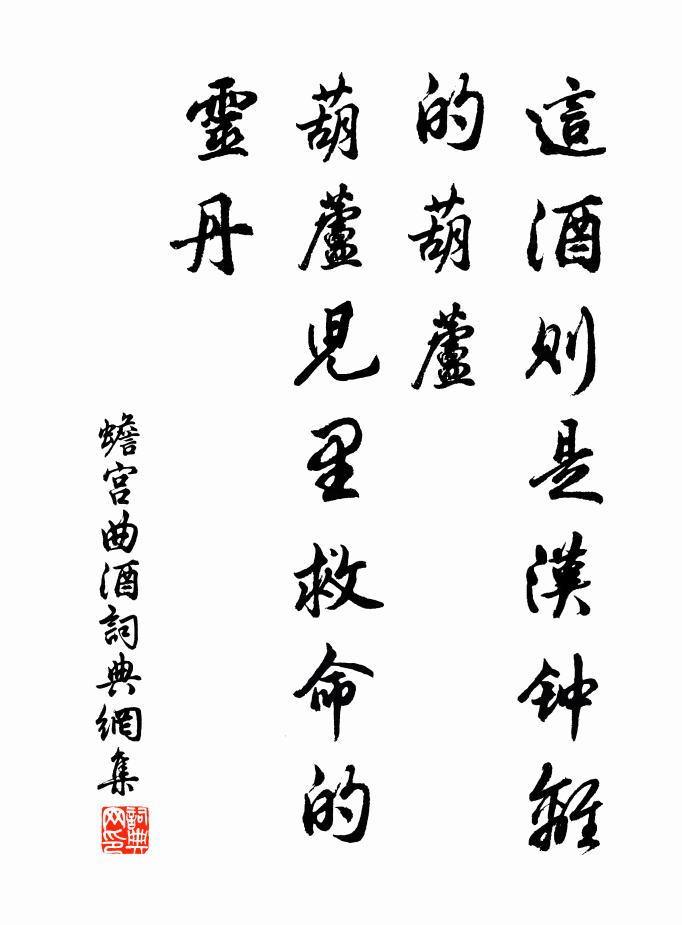 這酒則是漢钟離
的葫蘆
葫蘆兒里救命的
靈丹
蟾宮曲酒詞典網集
詞典
网印